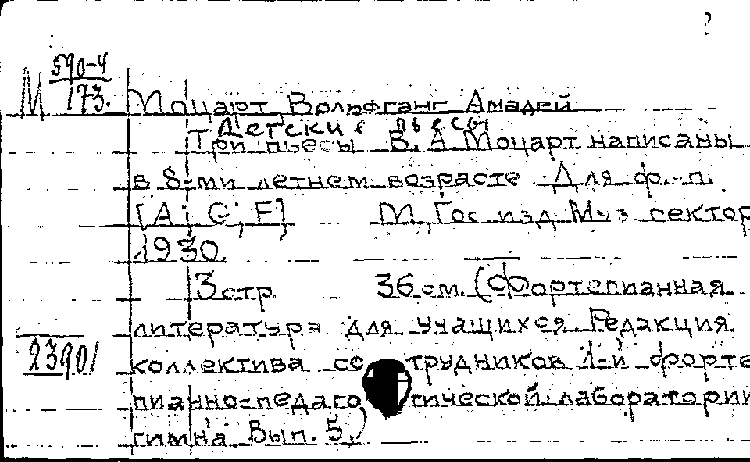 590-4
М 173.
Моцарт Вольфганг Амадей
Детские пьесы
Три пьесы В. А Моцарт написаны
в 8-ми летнем возрасте Для ф.-п.
[A; G; F] М, Гос изд Муз сектор
1930.
3 стр. 36 см. (Фортепианная
литература для учащихся Редакция
2390/ коллектива сотрудников 1-й форте
пианно-педагогической лаборатории
гимна Вып. 5)